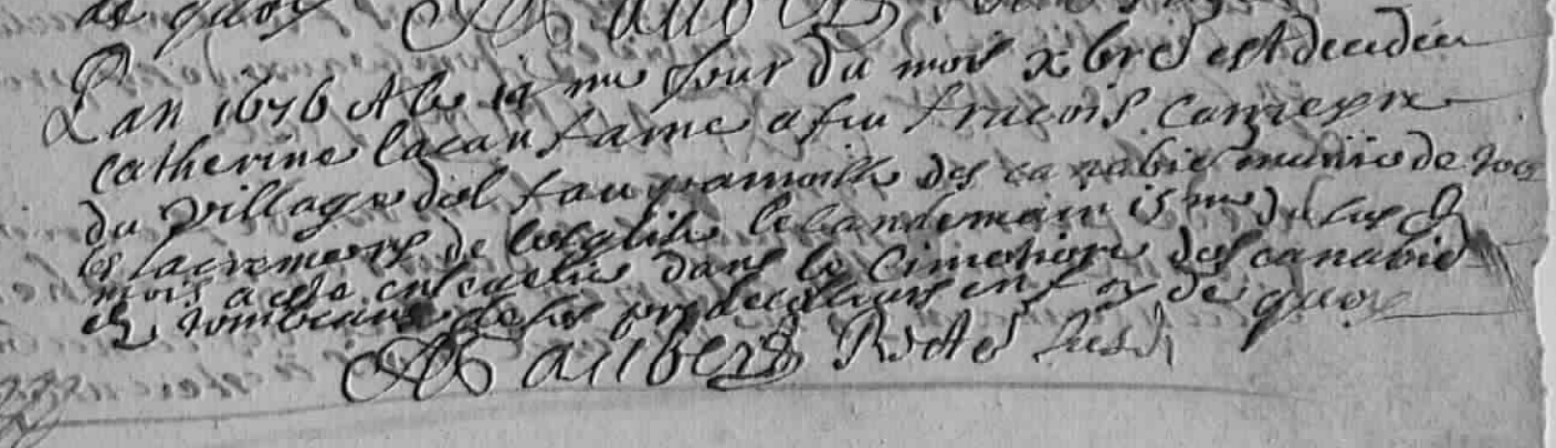 de quoy
L'an 1676 et le 14me jour du mois xbre est decedée
Catherine lacan fame a feu francois
du village del fau parroisse des canabie munie de tous
les sacremens de l'esglise le landemain 15me du susd
mois a esté ensevelie dans le Cimetiere des canabie
et tombeau de ses predecesseurs en foy de quoy
aubert Susd